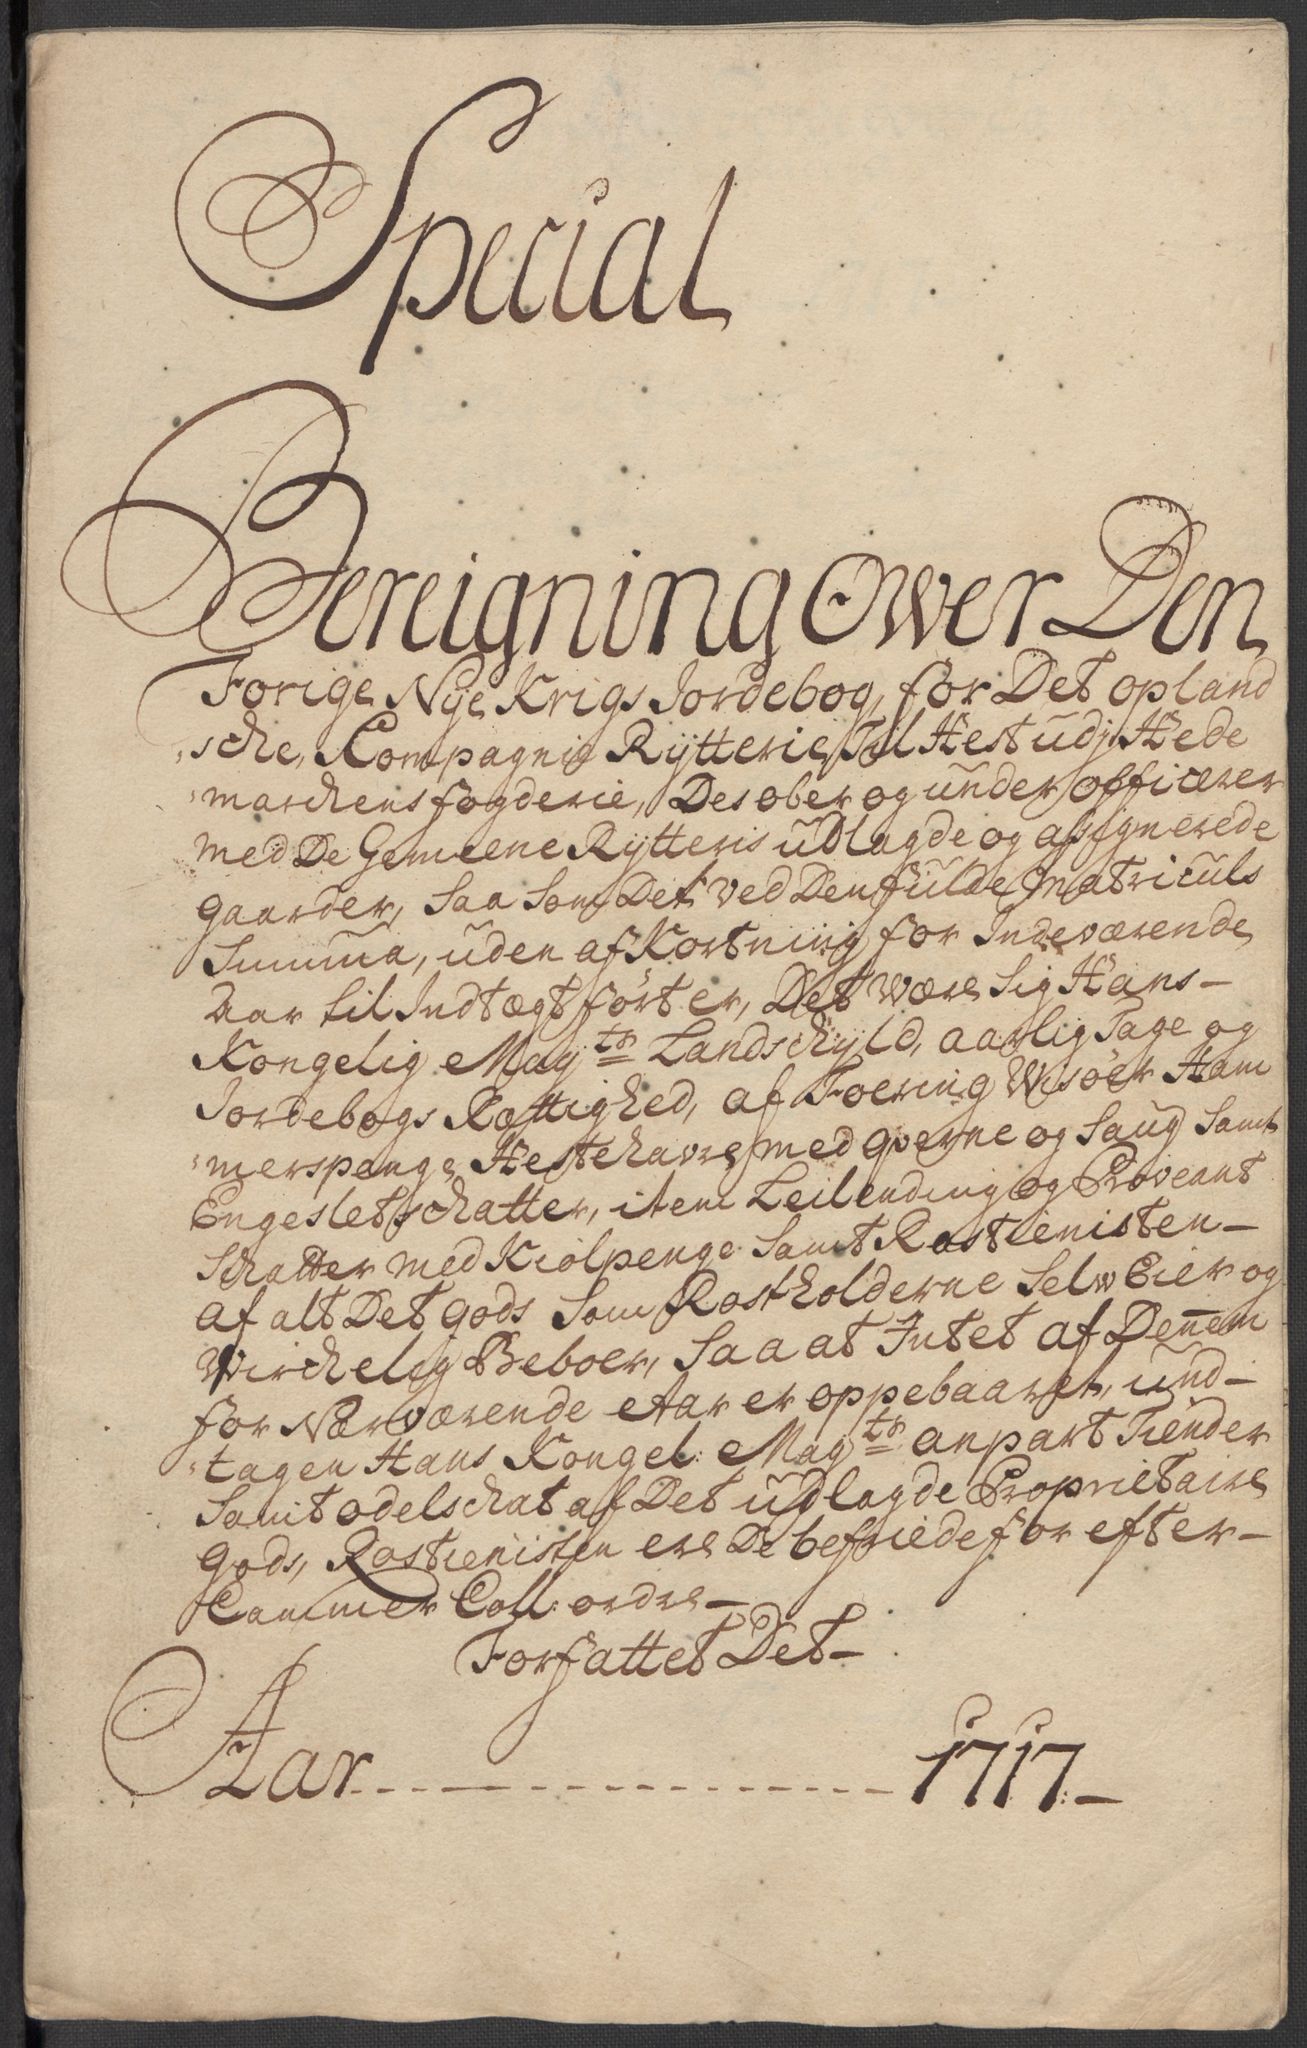 Special
Bereigning Over Den
Forige Nye Krigs Jordebog, for Det opland
sche, Compagnie Rÿtterie Til Hest udj Hede
marchens fogderie, Des ober og under officerer
med De Gemeene Rÿtteris udlagde og assignerede
gaarder, Saa Som Det ved Den fulde Matriculs
Summa, uden af Kortning for Indeværende
Aar til Indtægt fört er, Det være Sig Hans-
Kongelig Maytz Landschÿld, aarlig Tage og
Jordebogs Rættighed, af Foering Wisöer Ham
merspenge, Hestehavre med qverne og Saug Samt
Engeslet schatter, item Leilending og Proviant
Schatter med Kiölpenge Samt Rostienisten-
af alt Det gods Som Rostholderne Selw Eier og
Wirchelig Beboer, Saa at Intet af Dennem
for Nærværende Aar er oppebaaret, und-
tagen Hans Kongel: Maytz anpart Tiender
Samt odelschat af Det udlagde Proprietaire
gods, Rostienisten ere De befriede for efter-
Cammer Coll: ordre-
Forfattet Det-
Aar - - - - - - - - - - - 1717-